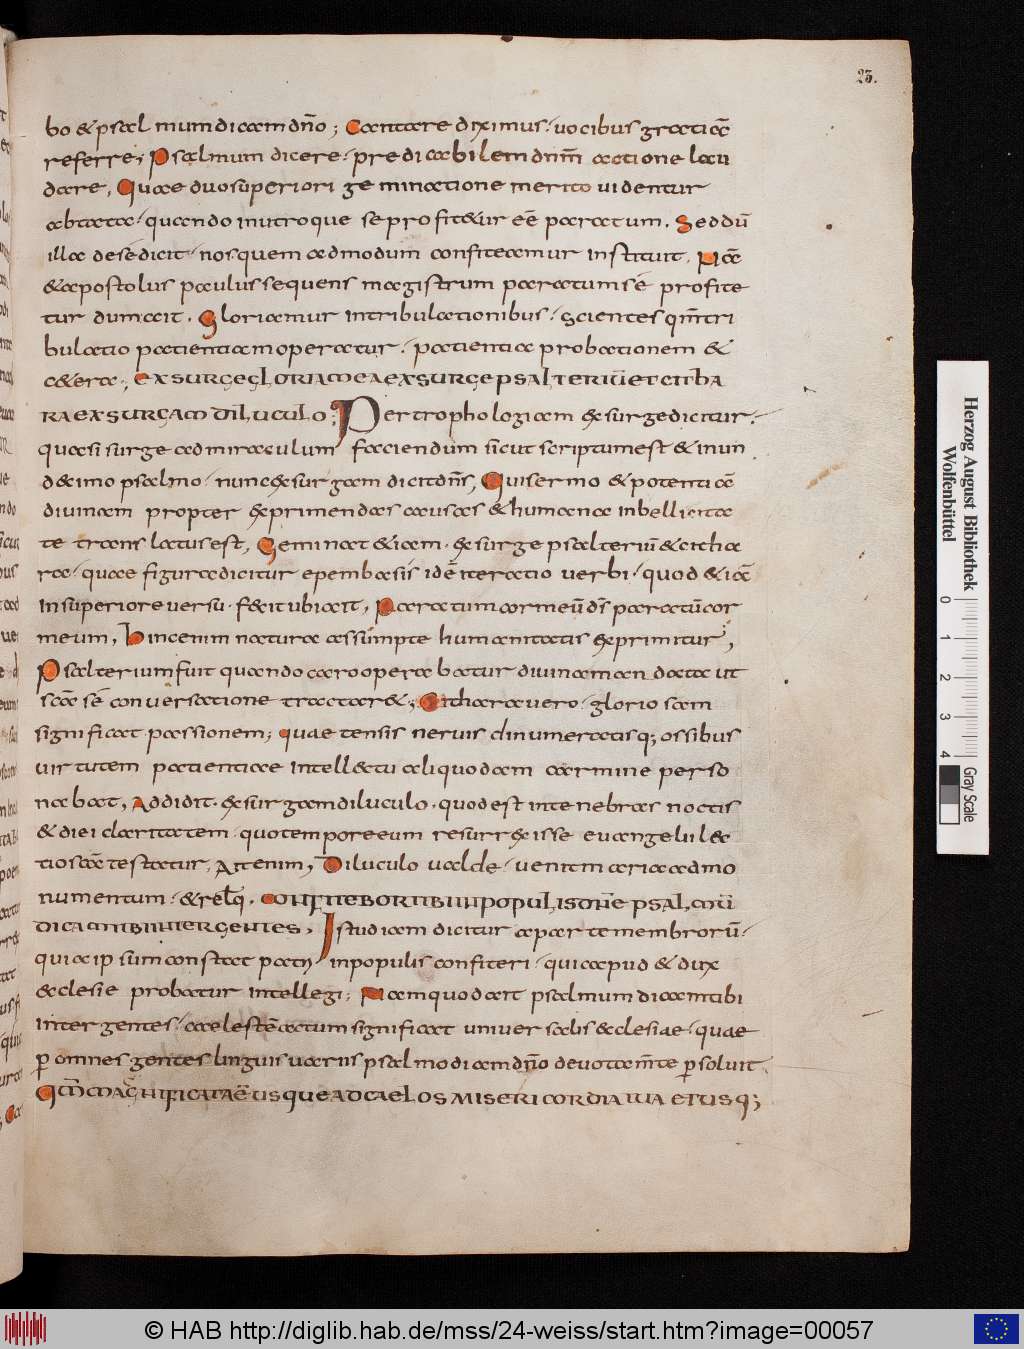 23.
bo & psalmum dicam dño; Cantare diximus · uocibus gratiā
referre; Psalmum dicere · predicabilem dnm̄ actione lau
dare, Quae duo superiori geminatione merito uidentur
abtata · quando in utroque se profitetur eē paratum. Sed dū
illa de se dicit · nos quem admodum confiteamur instituit. Nā
& apostolus paulus sequens magistrum paratum sē profite
tur dum ait. Gloriamur in tribulationibus · scientes qm̄ tri
bulatio patientiam operatur · patientia probationem &
c&era; EXSURGE GLORIA MEA EXSURGE PSALTERIŪ ET CITHA
RA EXSURGAM DILUCULO; Per trophologiam exsurge dicitur ·
quasi surge ad miraculum faciendum sicut scriptum est & in un
d&cimo psalmo · nunc exsurgam dicit dn̄s, Qui sermo & potentiā
diuinam propter exprimendas causas & humana inbellicita
te translatus est, Geminat & iam · exsurge psalteriū & citha
ra · quae figura dicitur epembasis idē iteratio uerbi · quod & iā
in superiore uersu · fecit ubi ait, Paratum cor meū dr̄ paratū cor
meum, Hinc enim natura assumpte humanitatis exprimitur,
Psalterium fuit quando caro operabatur diuina mandata ut
scāē sē conuersatione tractar&; Cithara uero · gloriosam
significat passionem; quae tensis neruis dinumeratisq; ossibus
uirtutem patientiae intellectu aliquo dam carmine perso
nabat, Addidit · exsurgam diluculo · quod est in tenebras noctis
& diei claritatem · quo tempore eum resurrexisse euangelii le
tio scāē testatur, Ait enim, Diluculo ualde · uenit maria ad mo
numentum · & relq̄. CONFITEBOR TIBI IN POPULIS DNE PSALMŪ
DICAM TIBI INTER GENTES, Istud iam dicitur a parte membrorū ·
qui a ipsum constat pati · in populis confiteri · qui apud & dux
ecclesie probatur intellegi; Nam quod ait psalmum dicam tibi
inter gentes · caeleste actum significat uniuersalis ecclesiae · quae
p̄ omnes gentes linguis uariis psalmodiam dño deuota m̄te p̄soluit.
QM̄ MAGNIFICATA Ē USQUE AD CAELOS MISERICORDIA TUA ET USQ;
Herzog August Bibliothek
Wolfenbüttel
0 1 2 3 4
Gray Scale
© HAB http://diglib.hab.de/mss/24-weiss/start.htm?image=00057